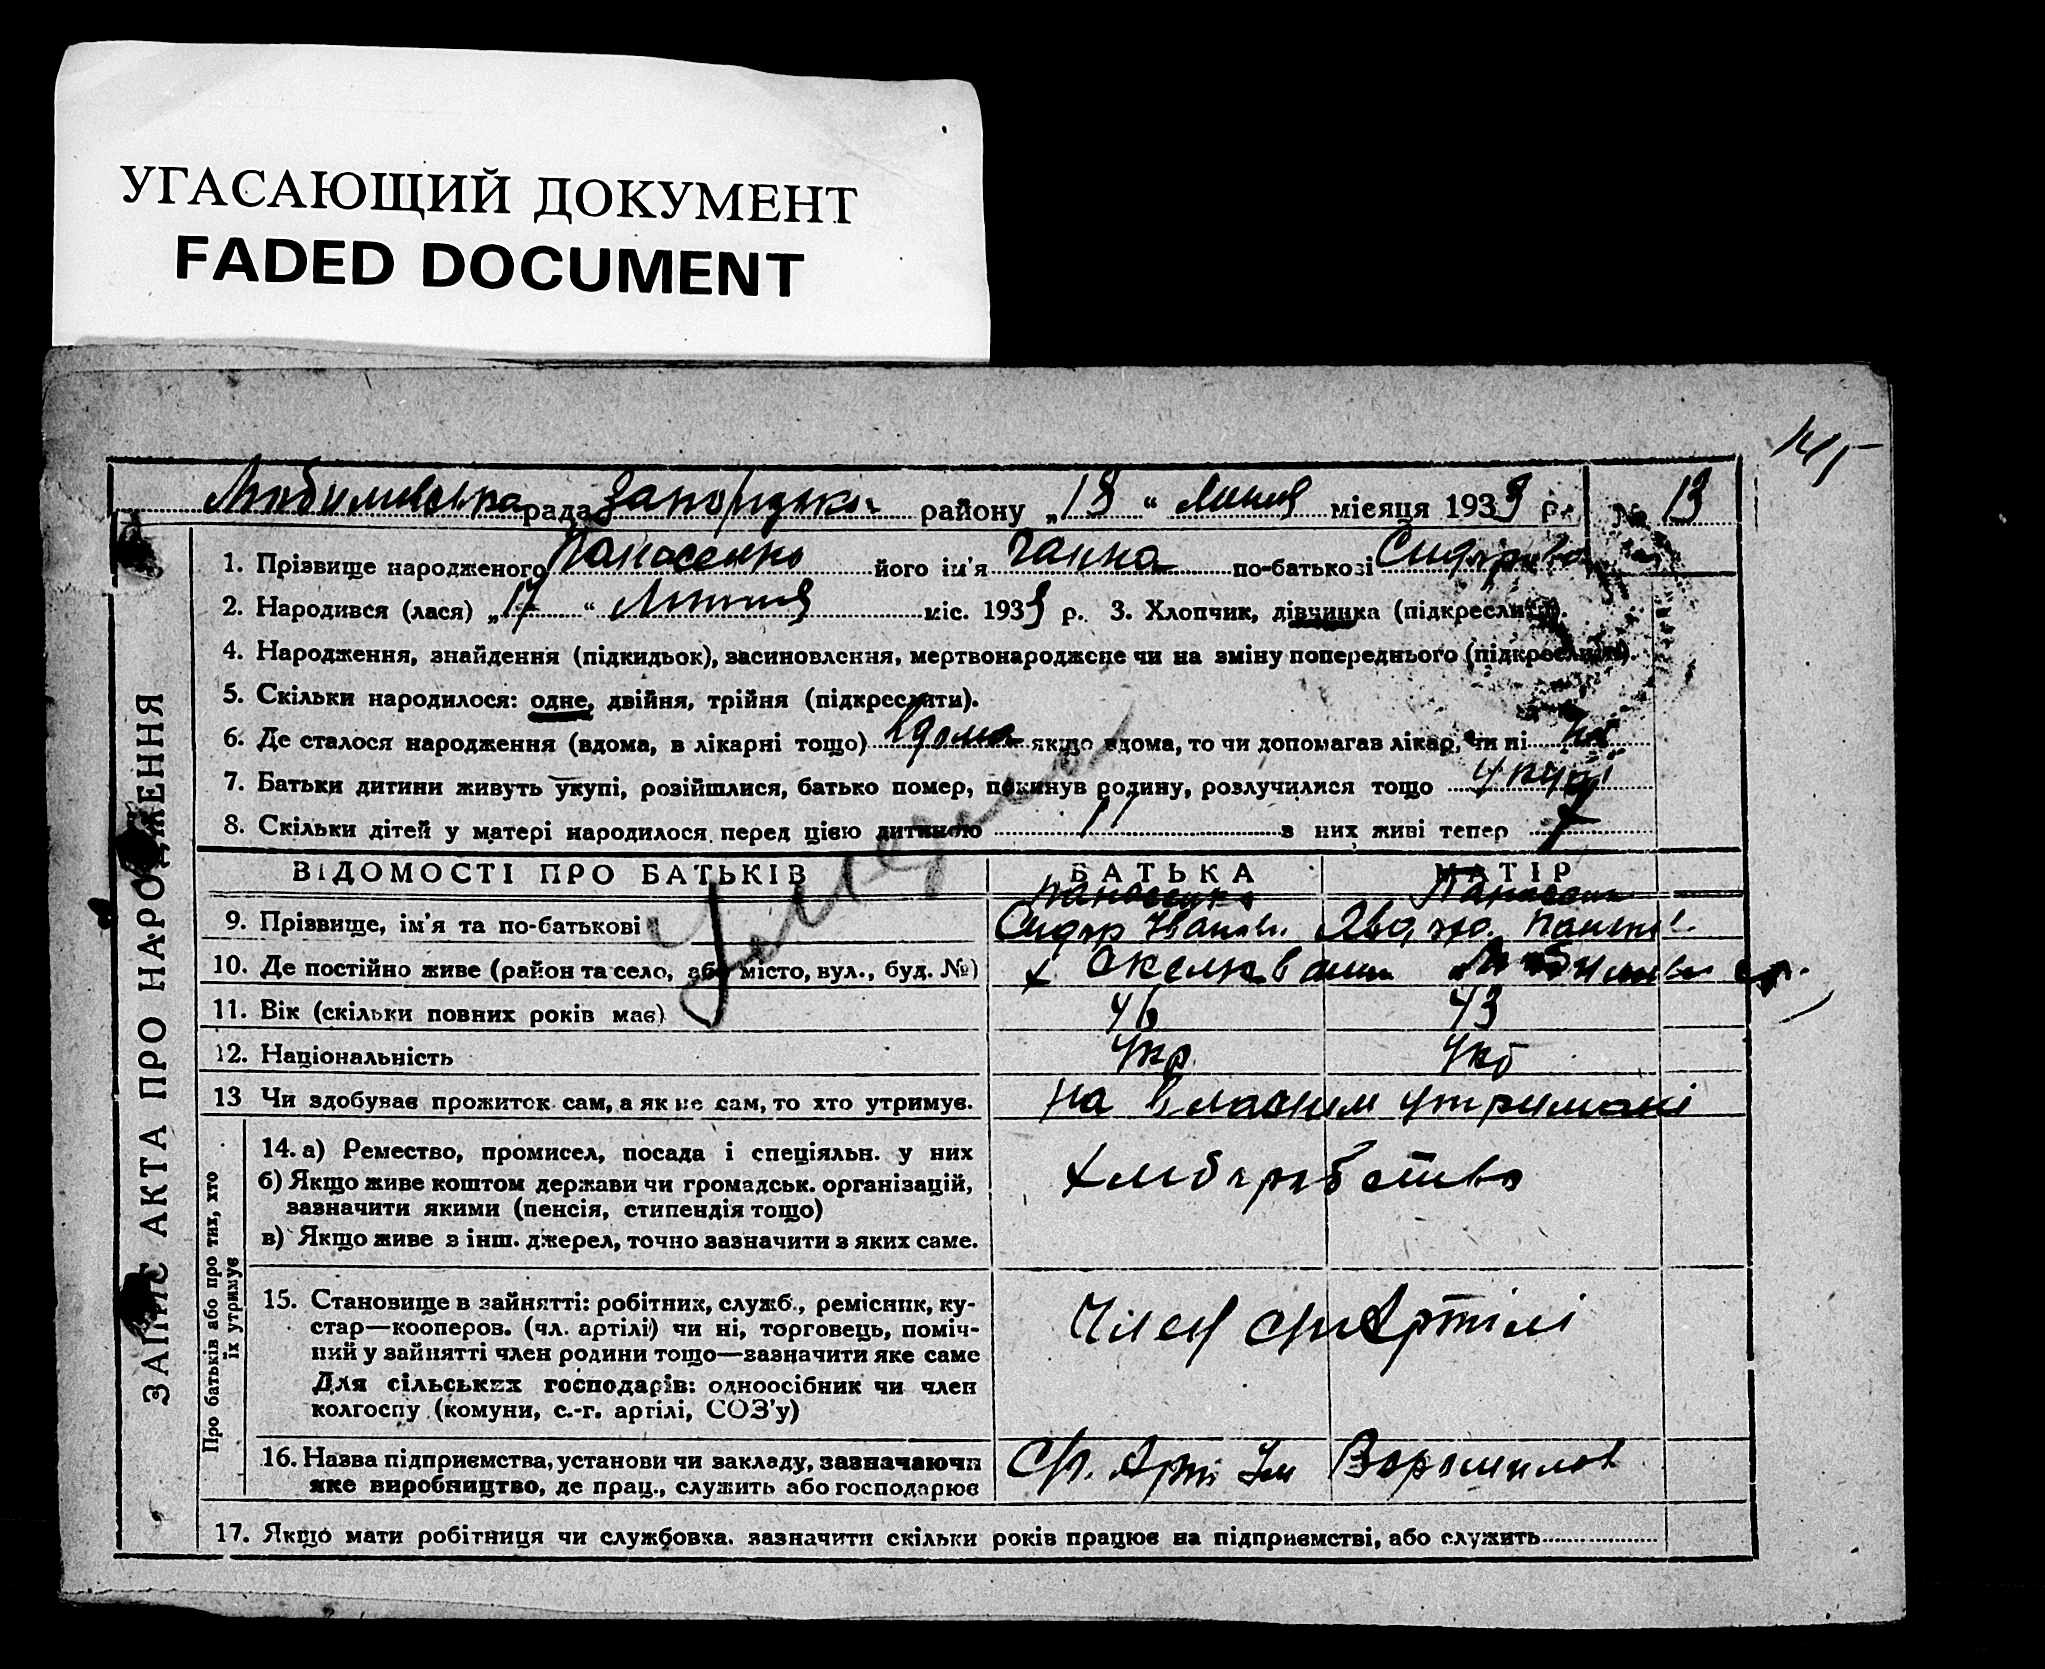 УГАСАЮЩИЙ ДОКУМЕНТ
FADED DOCUMENT
Любимівська рада району „18“ Липня місяця 1933 р. № 13
ЗАПИС АКТА ПРО НАРОДЖЕННЯ
1. Прізвище народженого Панасенко його ім'я Ганна по-батькові
2. Народився (лася) „17“ Липня міс. 1933 р. 3. Хлопчик, дівчинка (підкреслити).
4. Народження, знайдення (підкидьок), засиновлення, мертвонароджене чи на зміну попереднього (підкреслити).
5. Скільки народилося: одне, двійня, трійня (підкреслити).
6. Де сталося народження (вдома, в лікарні тощо) вдома якщо вдома, то чи допомагав лікар, чи ні
7. Батьки дитини живуть укупі, розійшлися, батько помер, покинув родину, розлучилися тощо укупі
8. Скільки дітей у матері народилося перед цією дитиною 11 з них живі тепер 7
ВІДОМОСТІ ПРО БАТЬКІВ БАТЬКА МАТІР
Панасенко Панасенк
9. Прізвище, ім'я та по-батькові Сидір Іванов.
10. Де постійно живе (район та село, або місто, вул., буд. №)
11. Вік (скільки повних років має) 46 43
12. Національність Укр Укр
13 Чи здобував прожиток сам, а як не сам, то хто утримує. на власнім утримані
Про батьків або про тих, хто
їх утримує
14. а) Ремество, промисел, посада і спеціяльн. у них
б) Якщо живе коштом держави чи громадськ. організацій,
зазначити якими (пенсія, стипендія тощо)
в) Якщо живе з інш. джерел, точно зазначити з яких саме.
хліборобство
15. Становище в зайнятті: робітник, служб., ремісник, ку-
стар—кооперов. (чл. артілі) чи ні, торговець, поміч-
ний у зайнятті член родини тощо—зазначити яке саме
Для сільських господарів: одноосібник чи член
колгоспу (комуни, с.-г. артілі, СОЗ'у)
Член с/г Артілі
16. Назва підприємства, установи чи закладу, зазначаючи
яке виробництво, де прац., служить або господарює
С/г. Арт Ім Ворошилов
17. Якщо мати робітниця чи службовка. зазначити скільки років працює на підприємстві, або служить